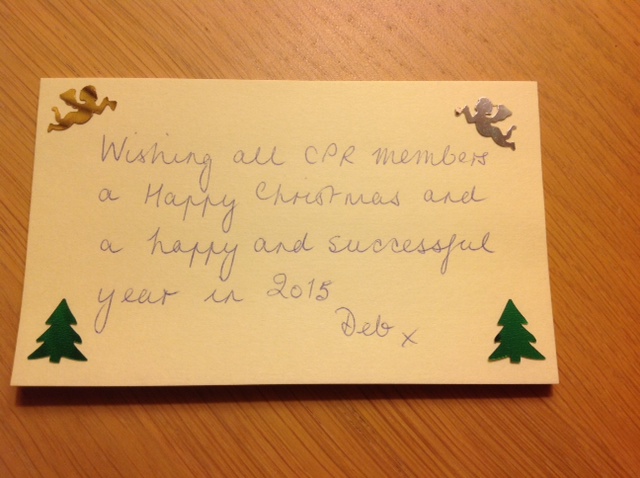 Wishing all CPR members
a Happy Christmas and
a happy and successful
year in 2015
Deb x